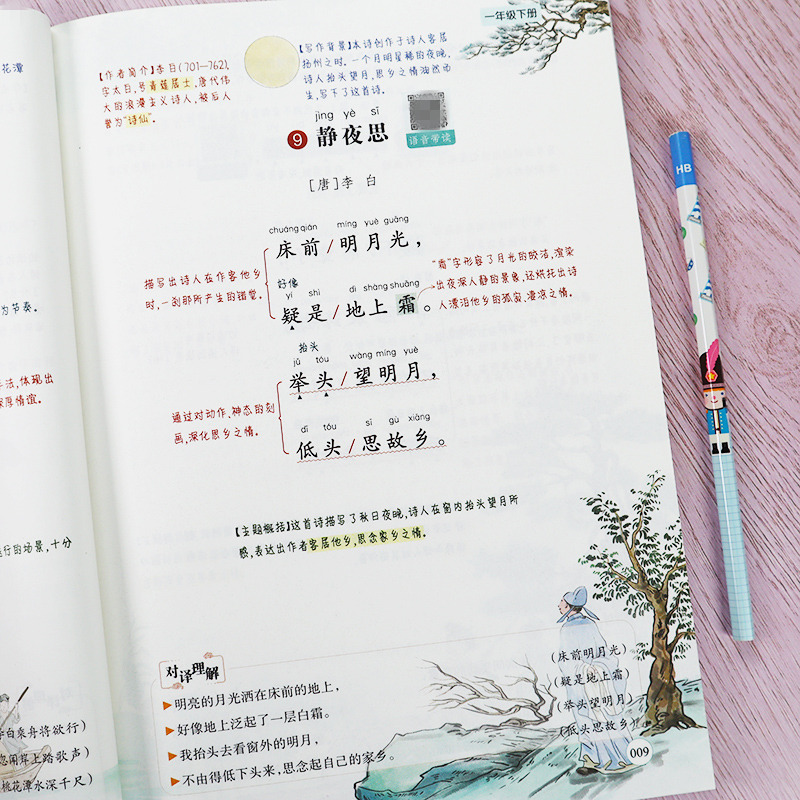 一年级下册
【作者简介】李白(701—762),
字太白,号青莲居士,唐代伟
大的浪漫主义诗人,被后人
誉为“诗仙”。
【写作背景】本诗创作于诗人客居
扬州之时。一个月明星稀的夜晚,
诗人抬头望月,思乡之情油然而
生,写下了这首诗。
jìng yè sī
9 静夜思
语音带读
[唐]李 白
chuáng qián míng yuè guāng
床前/明月光,
好像
yí shì dì shàng shuāng
疑是/地上霜。
描写出诗人在作客他乡
时,一刹那所产生的错觉。
“霜”字形容了月光的皎洁,渲染
出夜深人静的景象,还烘托出诗
人漂泊他乡的孤寂、凄凉之情。
抬头
jǔ tóu wàng míng yuè
举头/望明月,
dī tóu sī gù xiāng
低头/思故乡。
通过对动作、神态的刻
画,深化思乡之情。
【主题概括】这首诗描写了秋日夜晚,诗人在窗内抬头望月所
感,表达出作者客居他乡,思念家乡之情。
对译理解
▶明亮的月光洒在床前的地上,
▶好像地上泛起了一层白霜。
▶我抬头去看窗外的明月,
▶不由得低下头来,思念起自己的家乡。
(床前明月光)
(疑是地上霜)
(举头望明月)
(低头思故乡)
009
花潭
为节奏。
手法,体现出
深厚情谊。
行的场景,十分
白乘舟将欲行)
忽闻岸上踏歌声)
桃花潭水深千尺)
HB